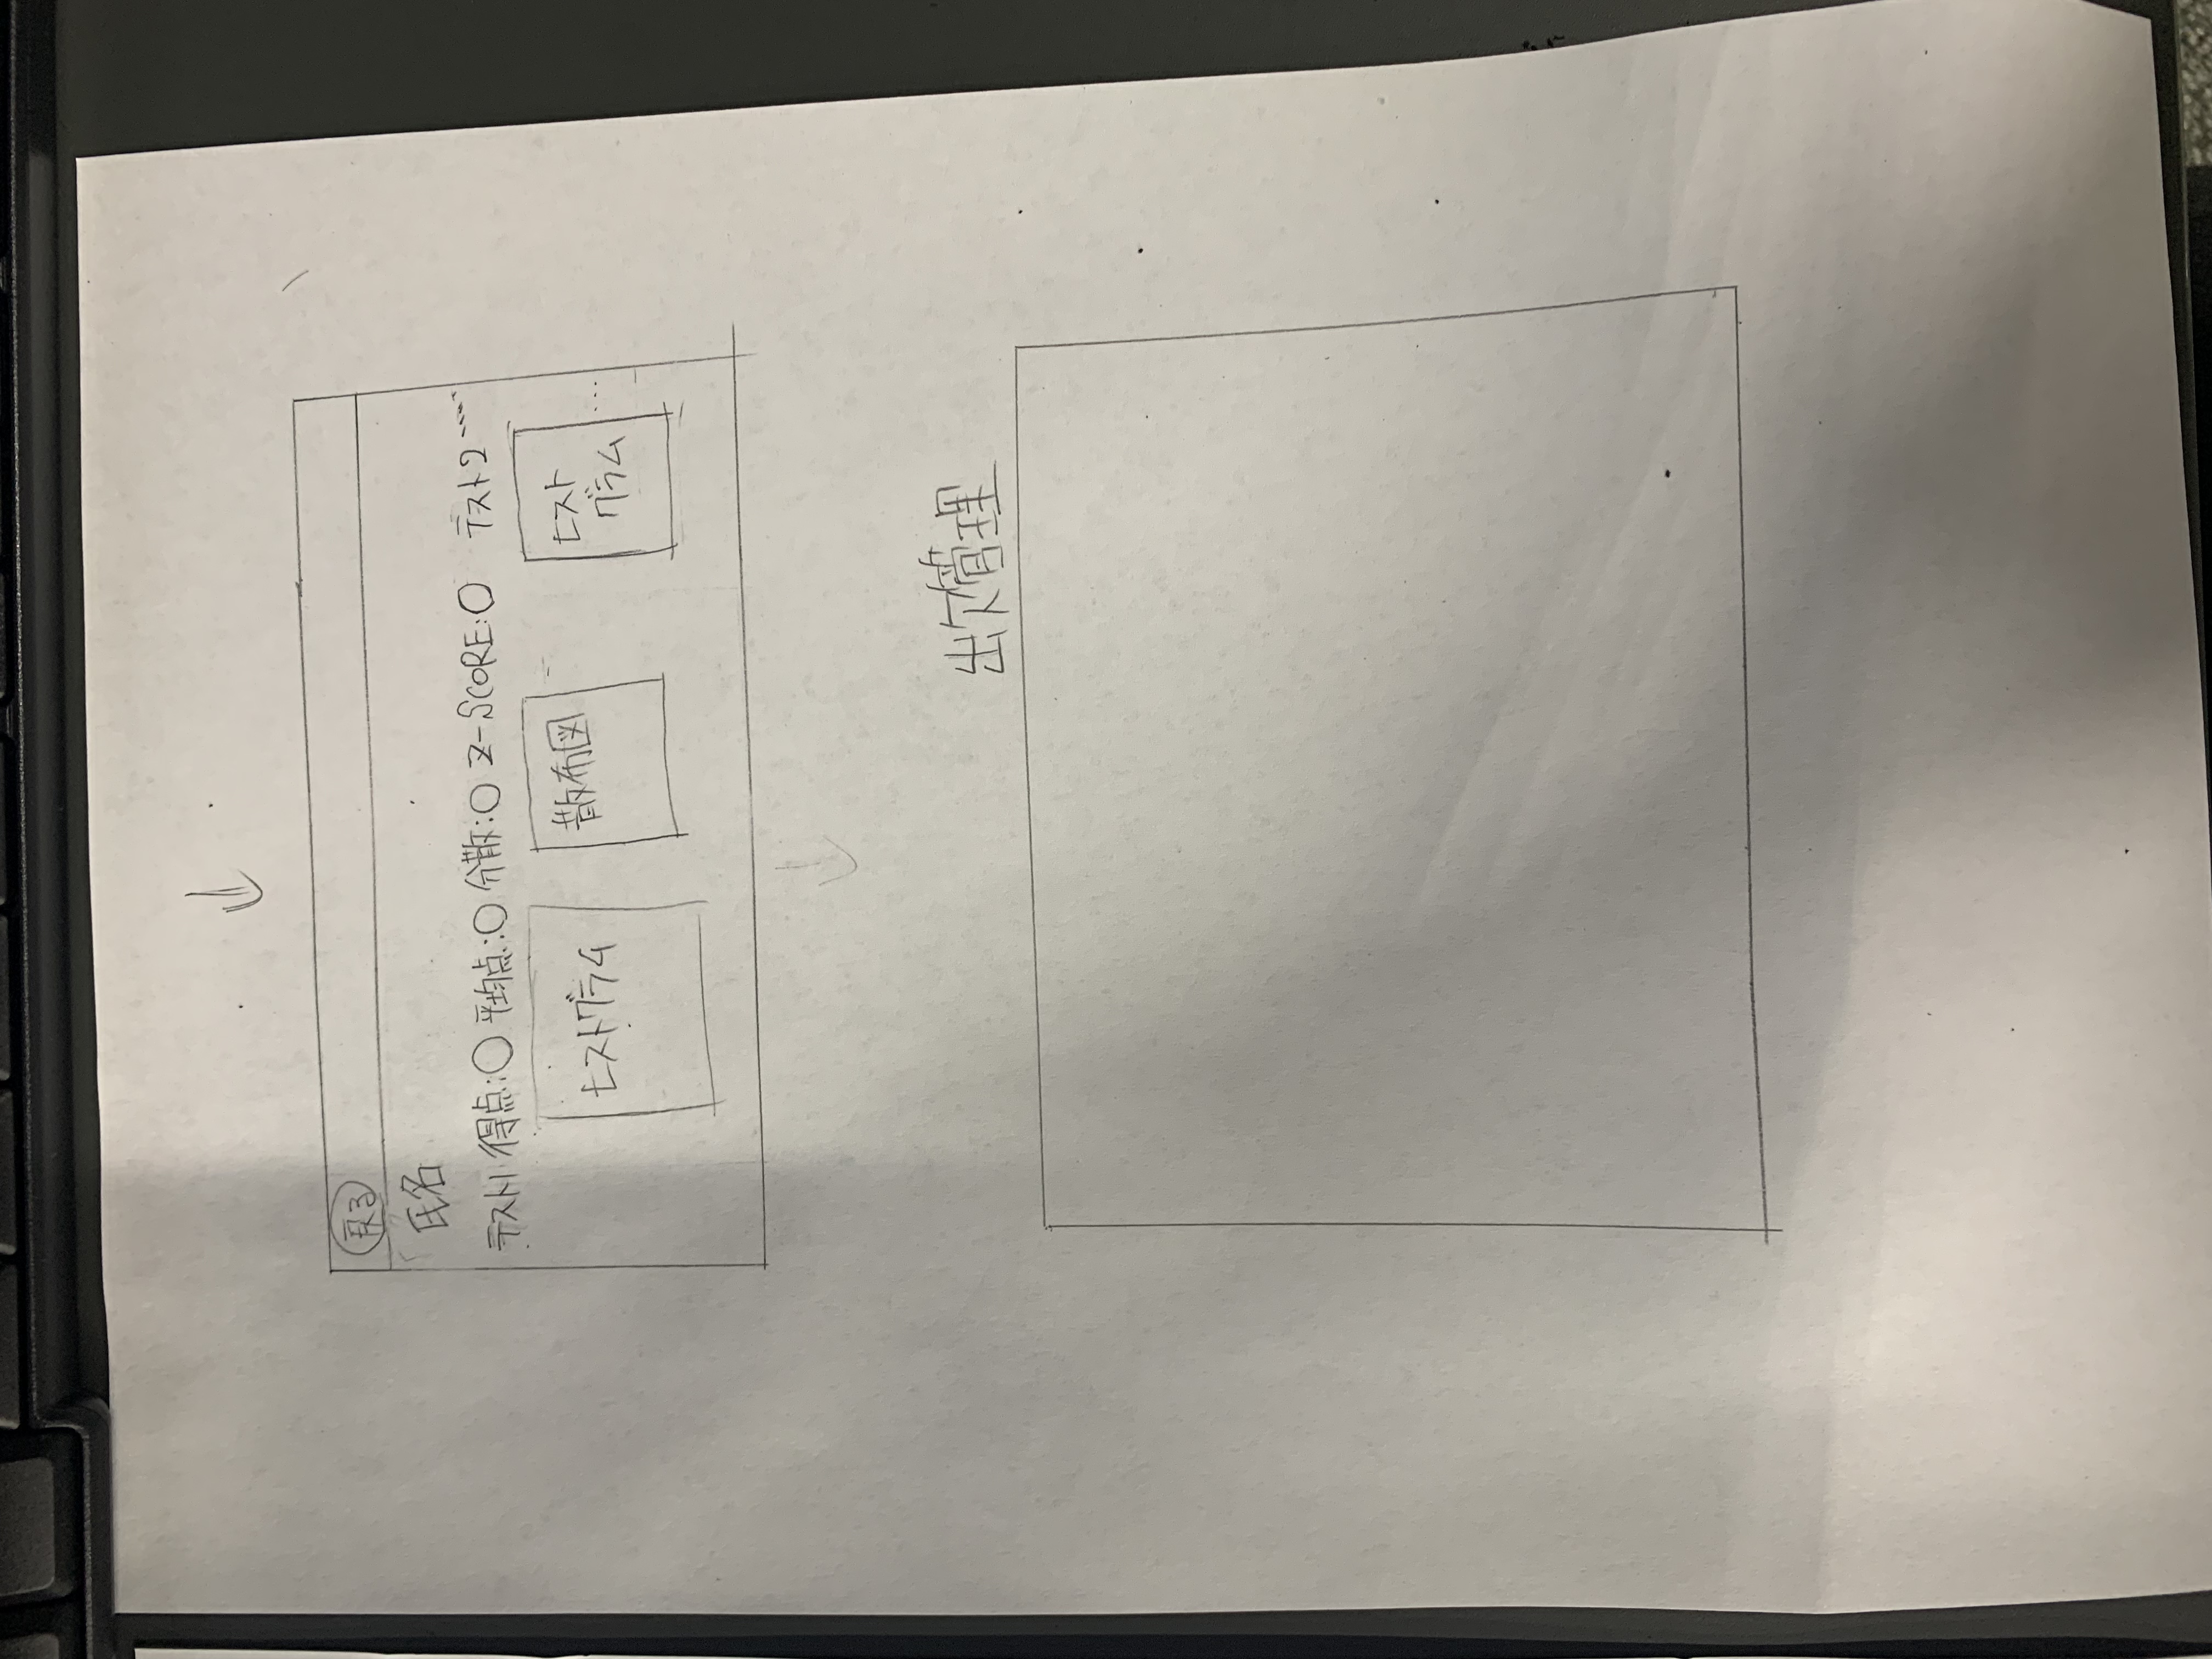 戻る
氏名
テスト1 得点:○ 平均点:○ 分散:○ Z-SCORE:○ テスト2 ……
ヒストグラム 散布図 ヒスト
グラム …
出欠管理